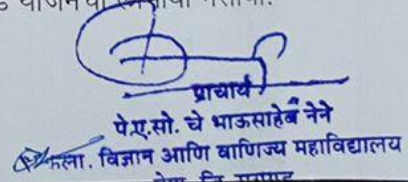 योजनेचा
प्राचार्य
पे.ए.सो. चे भाऊसाहेब नेने
कला. विज्ञान आणि वाणिज्य महाविद्यालय